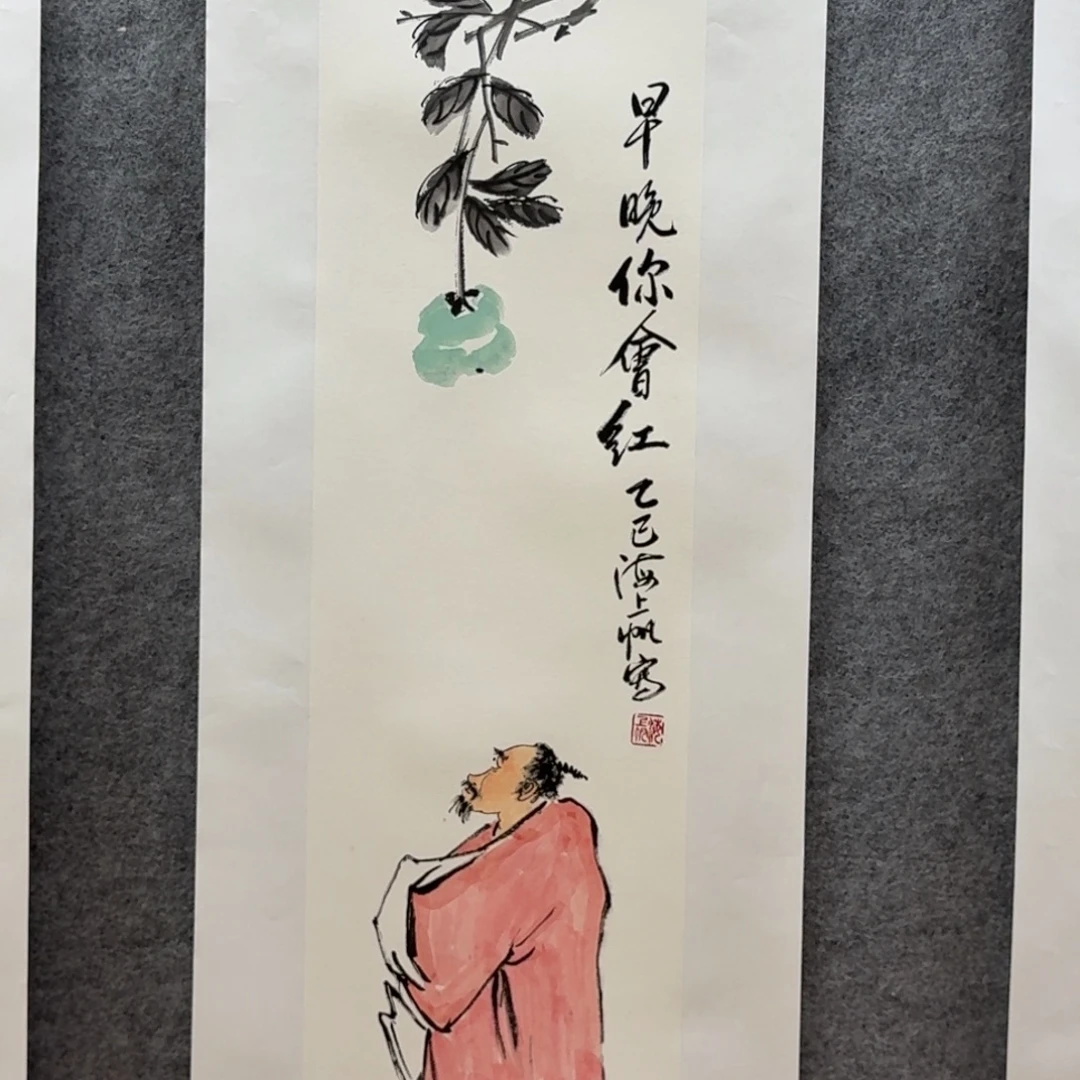 早晚你會红乙巳海上帆寫